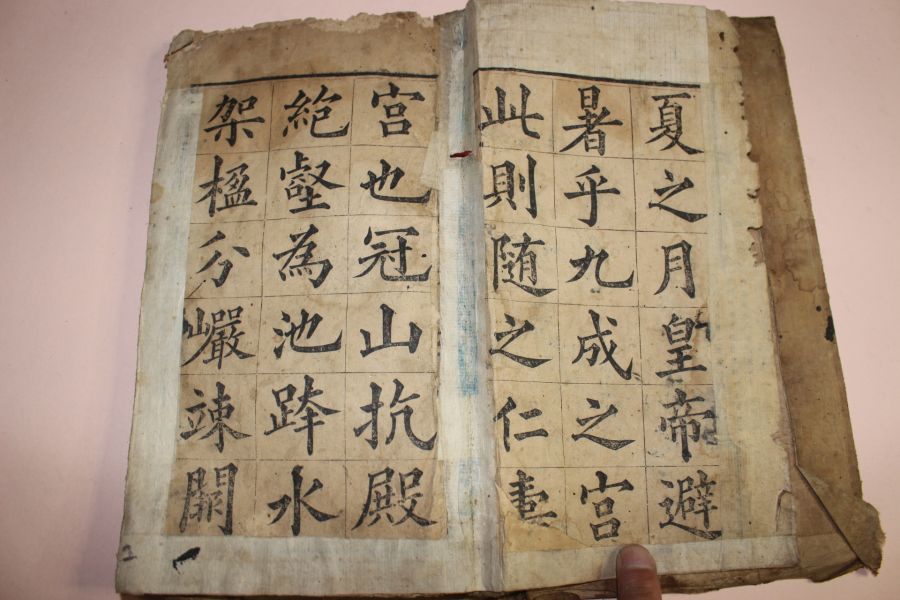 夏之月皇帝避
暑乎九成之宮
此則随之仁壽
宮也冠山抗殿
絶壑為池跨水
架楹分巗竦闕
2